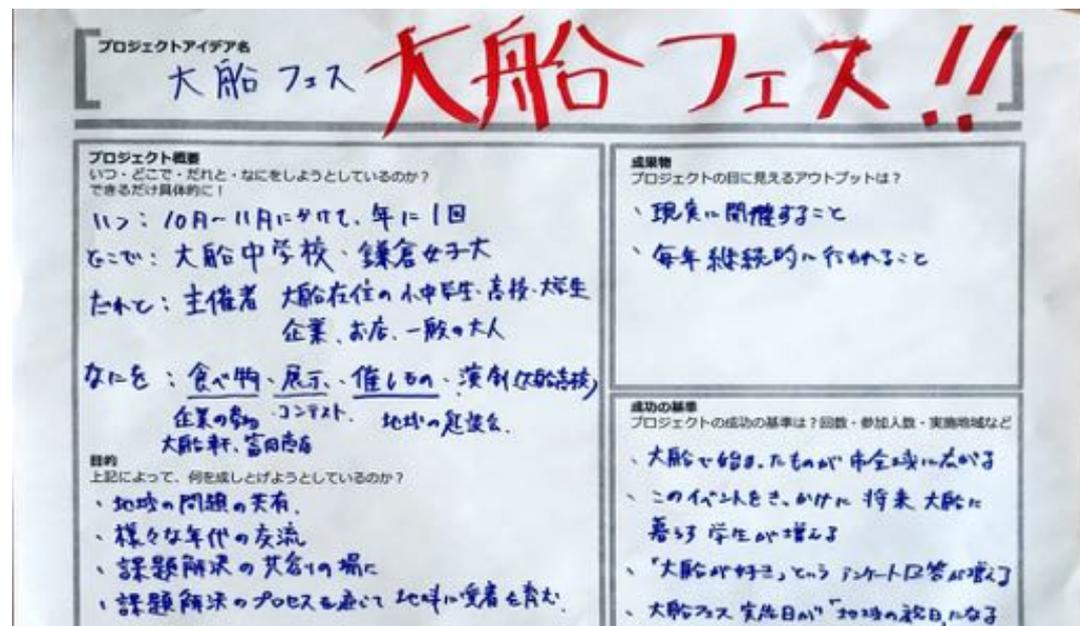 プロジェクトアイデア名
大船フェス
大船フェス!!
プロジェクト概要
いつ・どこで・だれと・なにをしようとしているのか?
できるだけ具体的に!
いつ:10月〜11月にかけて、年に1回
どこで:大船中学校・鎌倉女子大
だれと:主催者 大船在住の小中学生・高校・大学生
企業、お店、一般の大人
なにを:食べ物・展示・催しもの・演劇(大船高校)
企業の参加 コンテスト 地域の
大船軒、富岡商店
目的
上記によって、何を成しとげようとしているのか?
・地域の問題の共有
・様々な年代の交流
・課題解決の共創の場に
・課題解決のプロセスを通じて地域に愛着を育む
成果物
プロジェクトの目に見えるアウトプットは?
・現実に開催すること
・毎年継続的に行われること
成功の基準
プロジェクトの成功の基準は?回数・参加人数・実施地域など
・大船で始まったものが市全域に広がる
・このイベントをきっかけに将来大船に
暮らす学生が増える
・「大船が好き」というアンケート回答が増える
・大船フェス実施日が「地域の祝日」になる